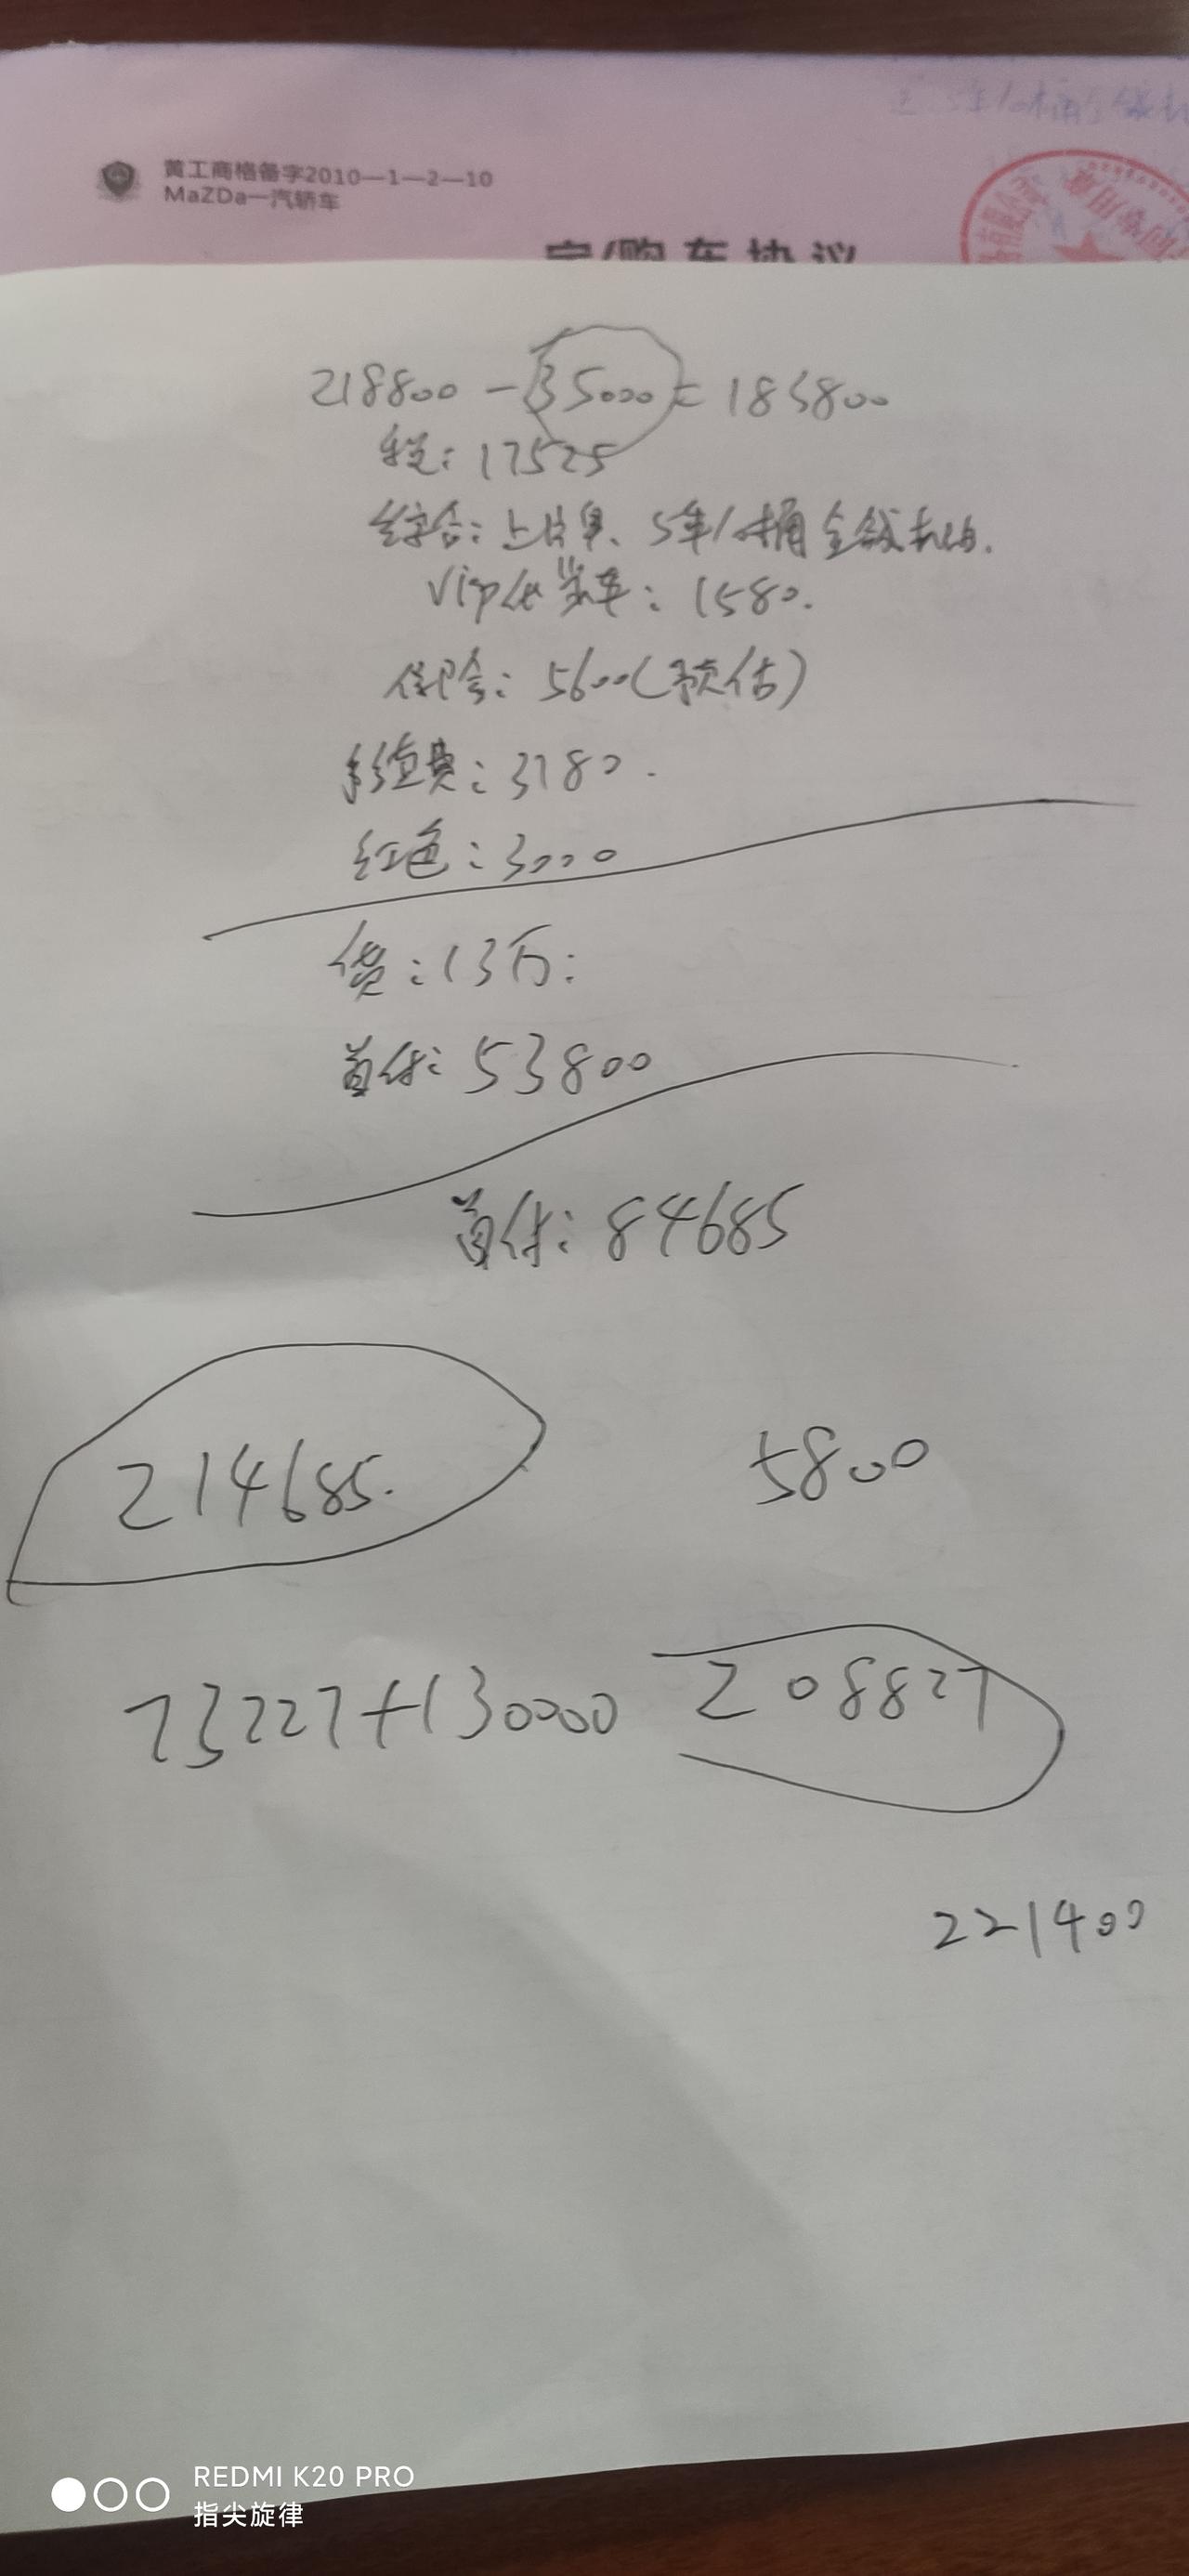 黄工商格备字2010—1—2—10
MaZDa一汽轿车
定/购车协议
218800-35000=183800
税:17525
综合:上牌单、5年10桶全合成机油.
Vip代步车:1580.
保险:5600(预估)
手续费:3180.
红色:3000
贷:13万:
首付:53800
首付:84685
214685.
5800
73227+130000
208827
221400
REDMI K20 PRO
指尖旋律